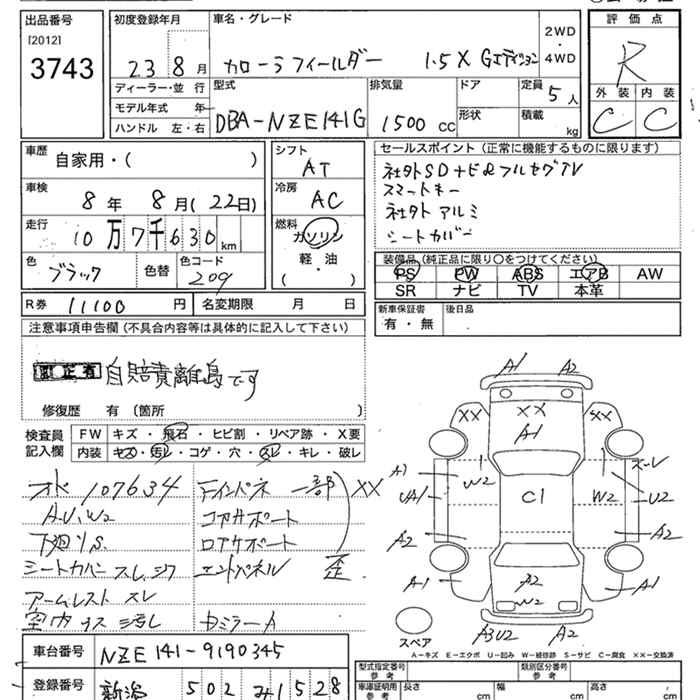 出品番号 [2012] 3743
初度登録年月 23 8月
ディーラー・並行
モデル年式 年
ハンドル 左・右
車名・グレード
カローラフィールダー 1.5X Gエディション
2WD・4WD
型式 DBA-NZE141G
排気量 1500 cc
ドア
形状
定員 5人
積載 kg
評価点
R
外装 内装
C C
車歴 自家用・( )
車検 8年 8月(22日)
走行 10万7千630km
色 ブラック 色替 色コード 209
シフト AT
冷房 AC
燃料 ガソリン・軽油・( )
R券 11100円 名変期限 月 日
セールスポイント (正常に機能するものに限ります)
社外SDナビ&フルセグTV
スマートキー
社外アルミ
シートカバー
装備品 (純正品に限り〇をつけてください)
PS PW ABS エアB AW
SR ナビ TV 本革
新車保証書 有・無
後日品
注意事項申告欄 (不具合内容等は具体的に記入して下さい)
訂正有 自賠責離島です
修復歴 有 (箇所 )
検査員記入欄
FW キズ・飛石・ヒビ割・リペア跡・X要
内装 キズ・汚レ・コゲ・穴・スレ・キレ・破レ
107634 一部 XX
A.U.W2 コアサポート
下廻りS. ロアサポート
シートカバー スレ、シワ エンドパネル 歪
アームレスト スレ
A1 A2
XX XX XX
A1
A1 W2 C1 W2 U2
UA1
A2 A2
A1 A2 W2 A1
A3U2 A2
スペア
A-キズ E-エクボ U-凹み W-補修跡 S-サビ C-腐食 XX-交換済
車台番号 NZE141-9190345
登録番号 新潟 502 み1528
型式指定番号 参考
類別区分番号 参考
車庫証明用 参考
長さ cm 幅 cm 高さ cm